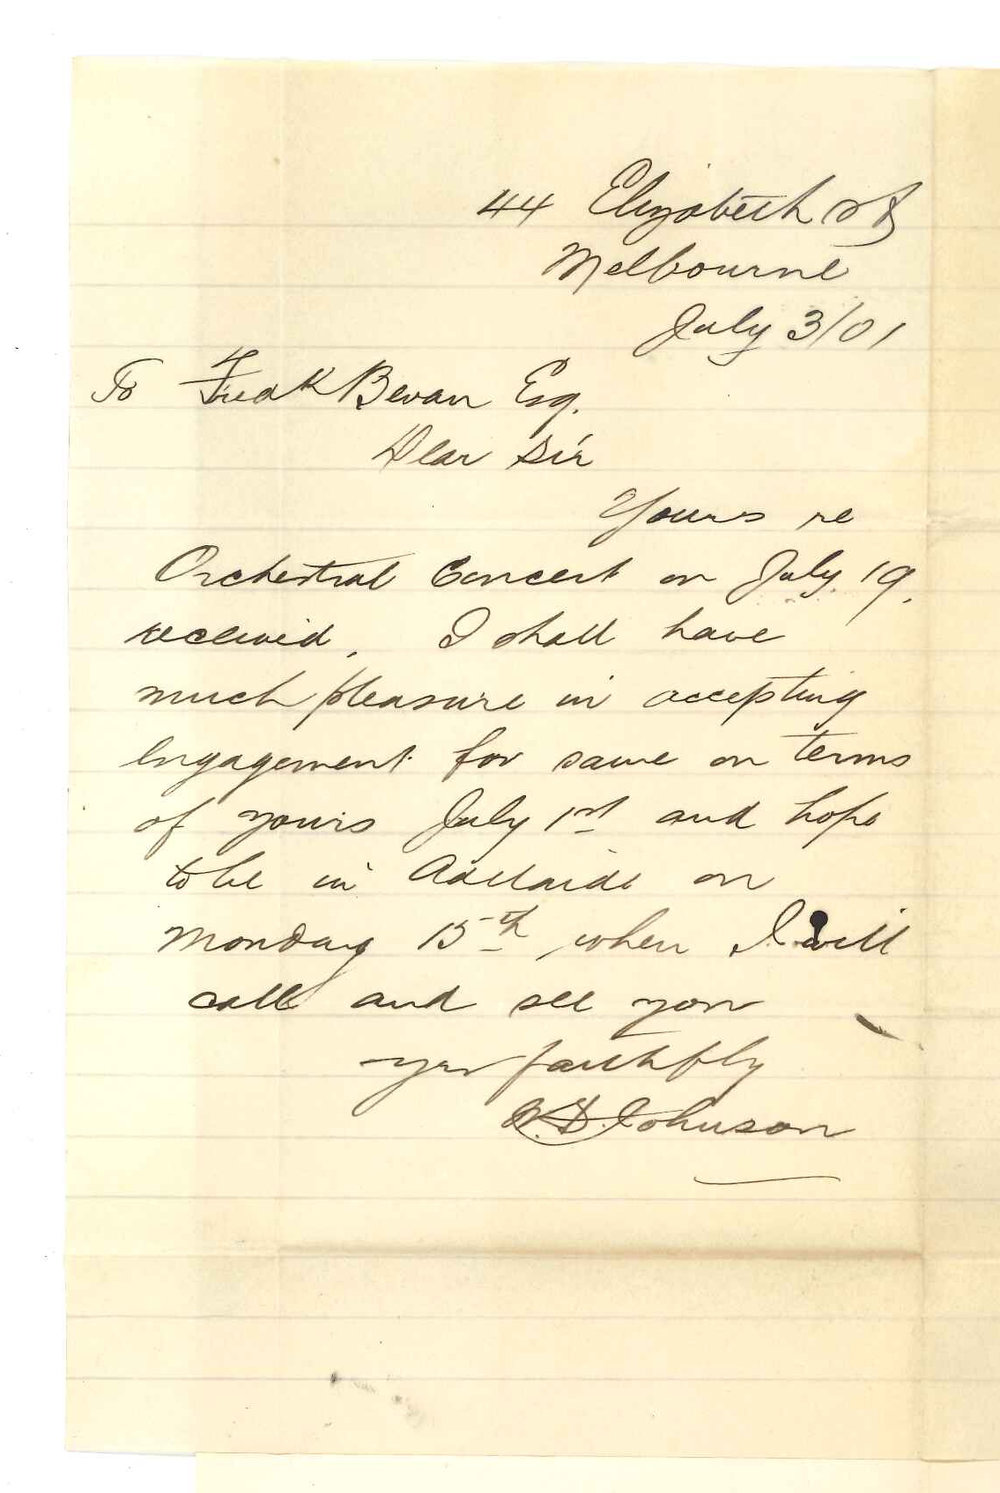 44 Elizabeth St
Melbourne
July 3/01
To Fredk Bevan Esq.
Dear Sir
Yours re
Orchestral Concert on July 19.
received. I shall have
much pleasure in accepting
engagement for same on terms
of yours July 1st and hope
to be in Adelaide on
Monday 15th, when I will
call and see you
yrs faithfly
Johnson